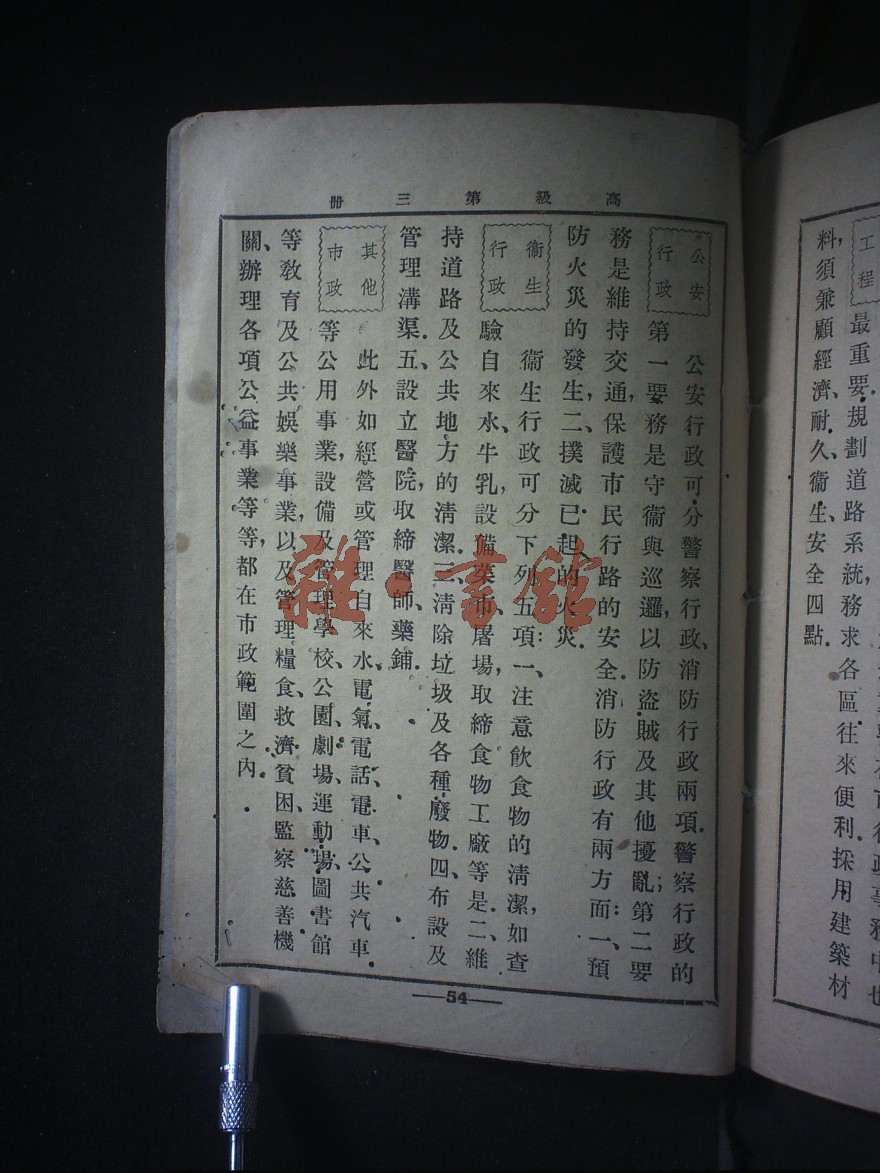 行政事務中也
工程
最重要.規劃道路系統,務求各區往來便利.採用建築材
料,須兼顧經濟、耐久、衞生、安全四點.
高級第三冊
公安
行政
公安行政可分警察行政、消防行政兩項.警察行政的
第一要務是守衞與巡邏,以防盜賊及其他擾亂;第二要
務是維持交通,保護市民行路的安全.消防行政有兩方面:一、預
防火災的發生,二、撲滅已起的火災.
衞生
行政
衞生行政可分下列五項:一、注意飲食物的清潔,如查
驗自來水、牛乳,設備菜市屠場,取締食物工廠等是.二、維
持道路及公共地方的清潔.三、清除垃圾及各種廢物.四、布設及
管理溝渠.五、設立醫院,取締醫師、藥鋪.
其他
市政
此外如經營或管理自來水、電氣、電話、電車、公共汽車
等公用事業,設備及管理學校、公園、劇場、運動場、圖書館
等教育及公共娛樂事業,以及管理糧食、救濟貧困、監察慈善機
關、辦理各項公益事業等等,都在市政範圍之內.
54
雜·書館